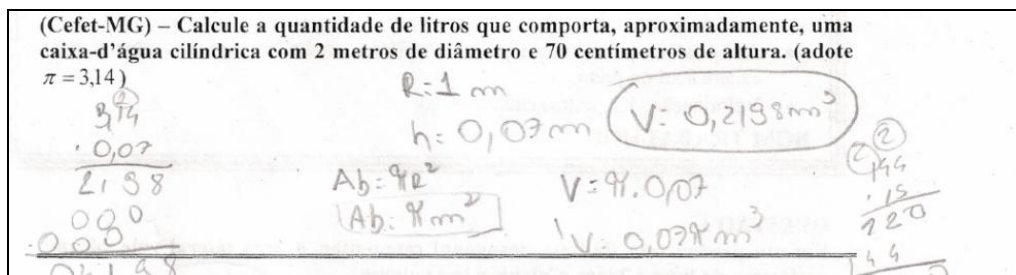 (Cefet-MG) – Calcule a quantidade de litros que comporta, aproximadamente, uma
caixa-d'água cilíndrica com 2 metros de diâmetro e 70 centímetros de altura. (adote
π = 3,14)
R: 1 m
h: 0,07 m
V: 0,2198 m³
3,14
. 0,07
2198
000
Ab: πR²
Ab: π m²
V = π. 0,07
V: 0,07π m³
2
44
. 15
220
44